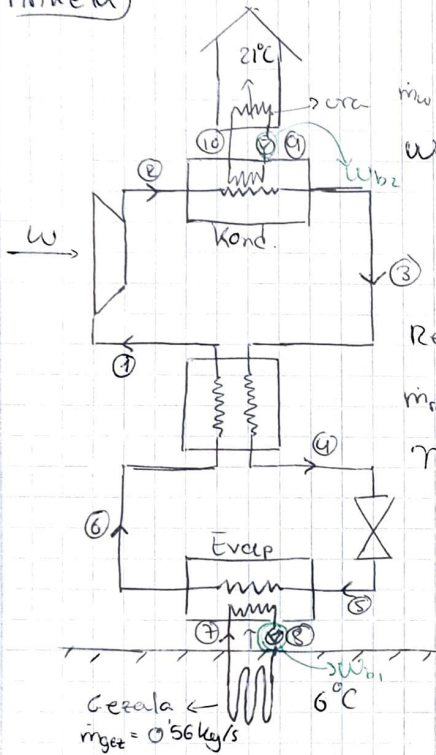 21°C
→ ura
ṁw
⑩
⑨
W
②
Wb2
Kond.
W
③
①
Re
ṁr
④
⑥
Evap
⑤
⑦
⑧
Ẇb1
6°C
Gezala ←
ṁgez = 0'56 kg/s